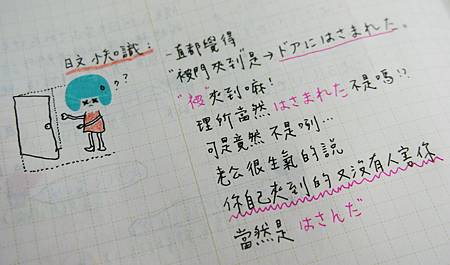 日文小知識:
一直都覺得
"被門夾到"是→ドアにはさまれた。
"被"夾到嘛!
理所當然はさまれた不是嗎!?
可是竟然不是咧...
老公很生氣的說
你自己夾到的又沒有人害你
當然是 はさんだ
??